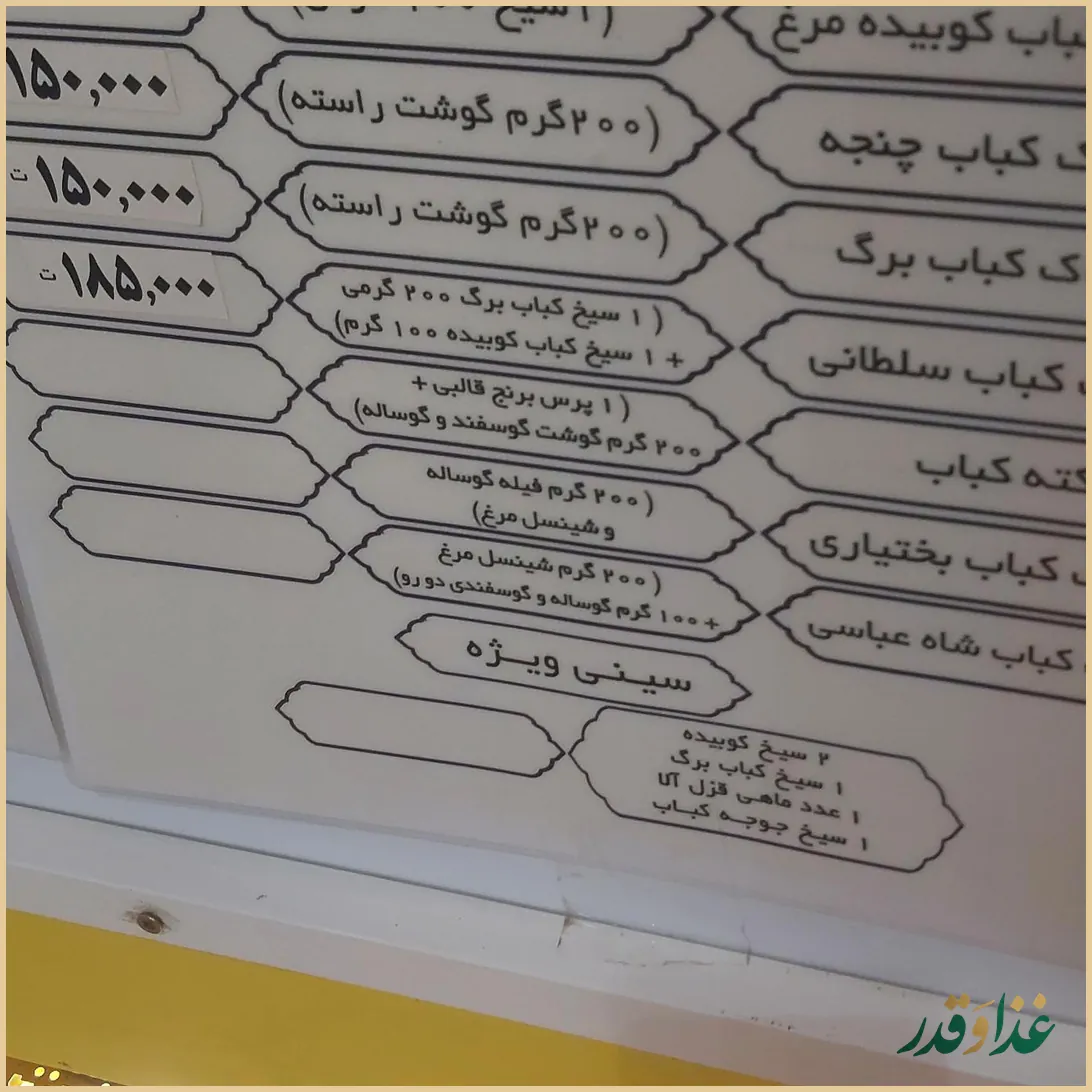 کباب کوبیده مرغ
ک کباب چنجه (۲۰۰گرم گوشت راسته) ۱۵۰,۰۰۰
ک کباب برگ (۲۰۰گرم گوشت راسته) ۱۵۰,۰۰۰ ت
کباب سلطانی
(۱ سیخ کباب برگ ۲۰۰ گرمی
+ ۱ سیخ کباب کوبیده ۱۰۰ گرم)
۱۸۵,۰۰۰ ت
کته کباب
(۱ پرس برنج قالبی +
۲۰۰ گرم گوشت گوسفند و گوساله)
کباب بختیاری
(۲۰۰ گرم فیله گوساله
و شینسل مرغ)
کباب شاه عباسی
(۲۰۰ گرم شینسل مرغ
+۱۰۰ گرم گوساله و گوسفندی دو رو)
سینی ویژه
۲ سیخ کوبیده
۱ سیخ کباب برگ
۱ عدد ماهی قزل آلا
۱ سیخ جوجه کباب
غذا و قدر